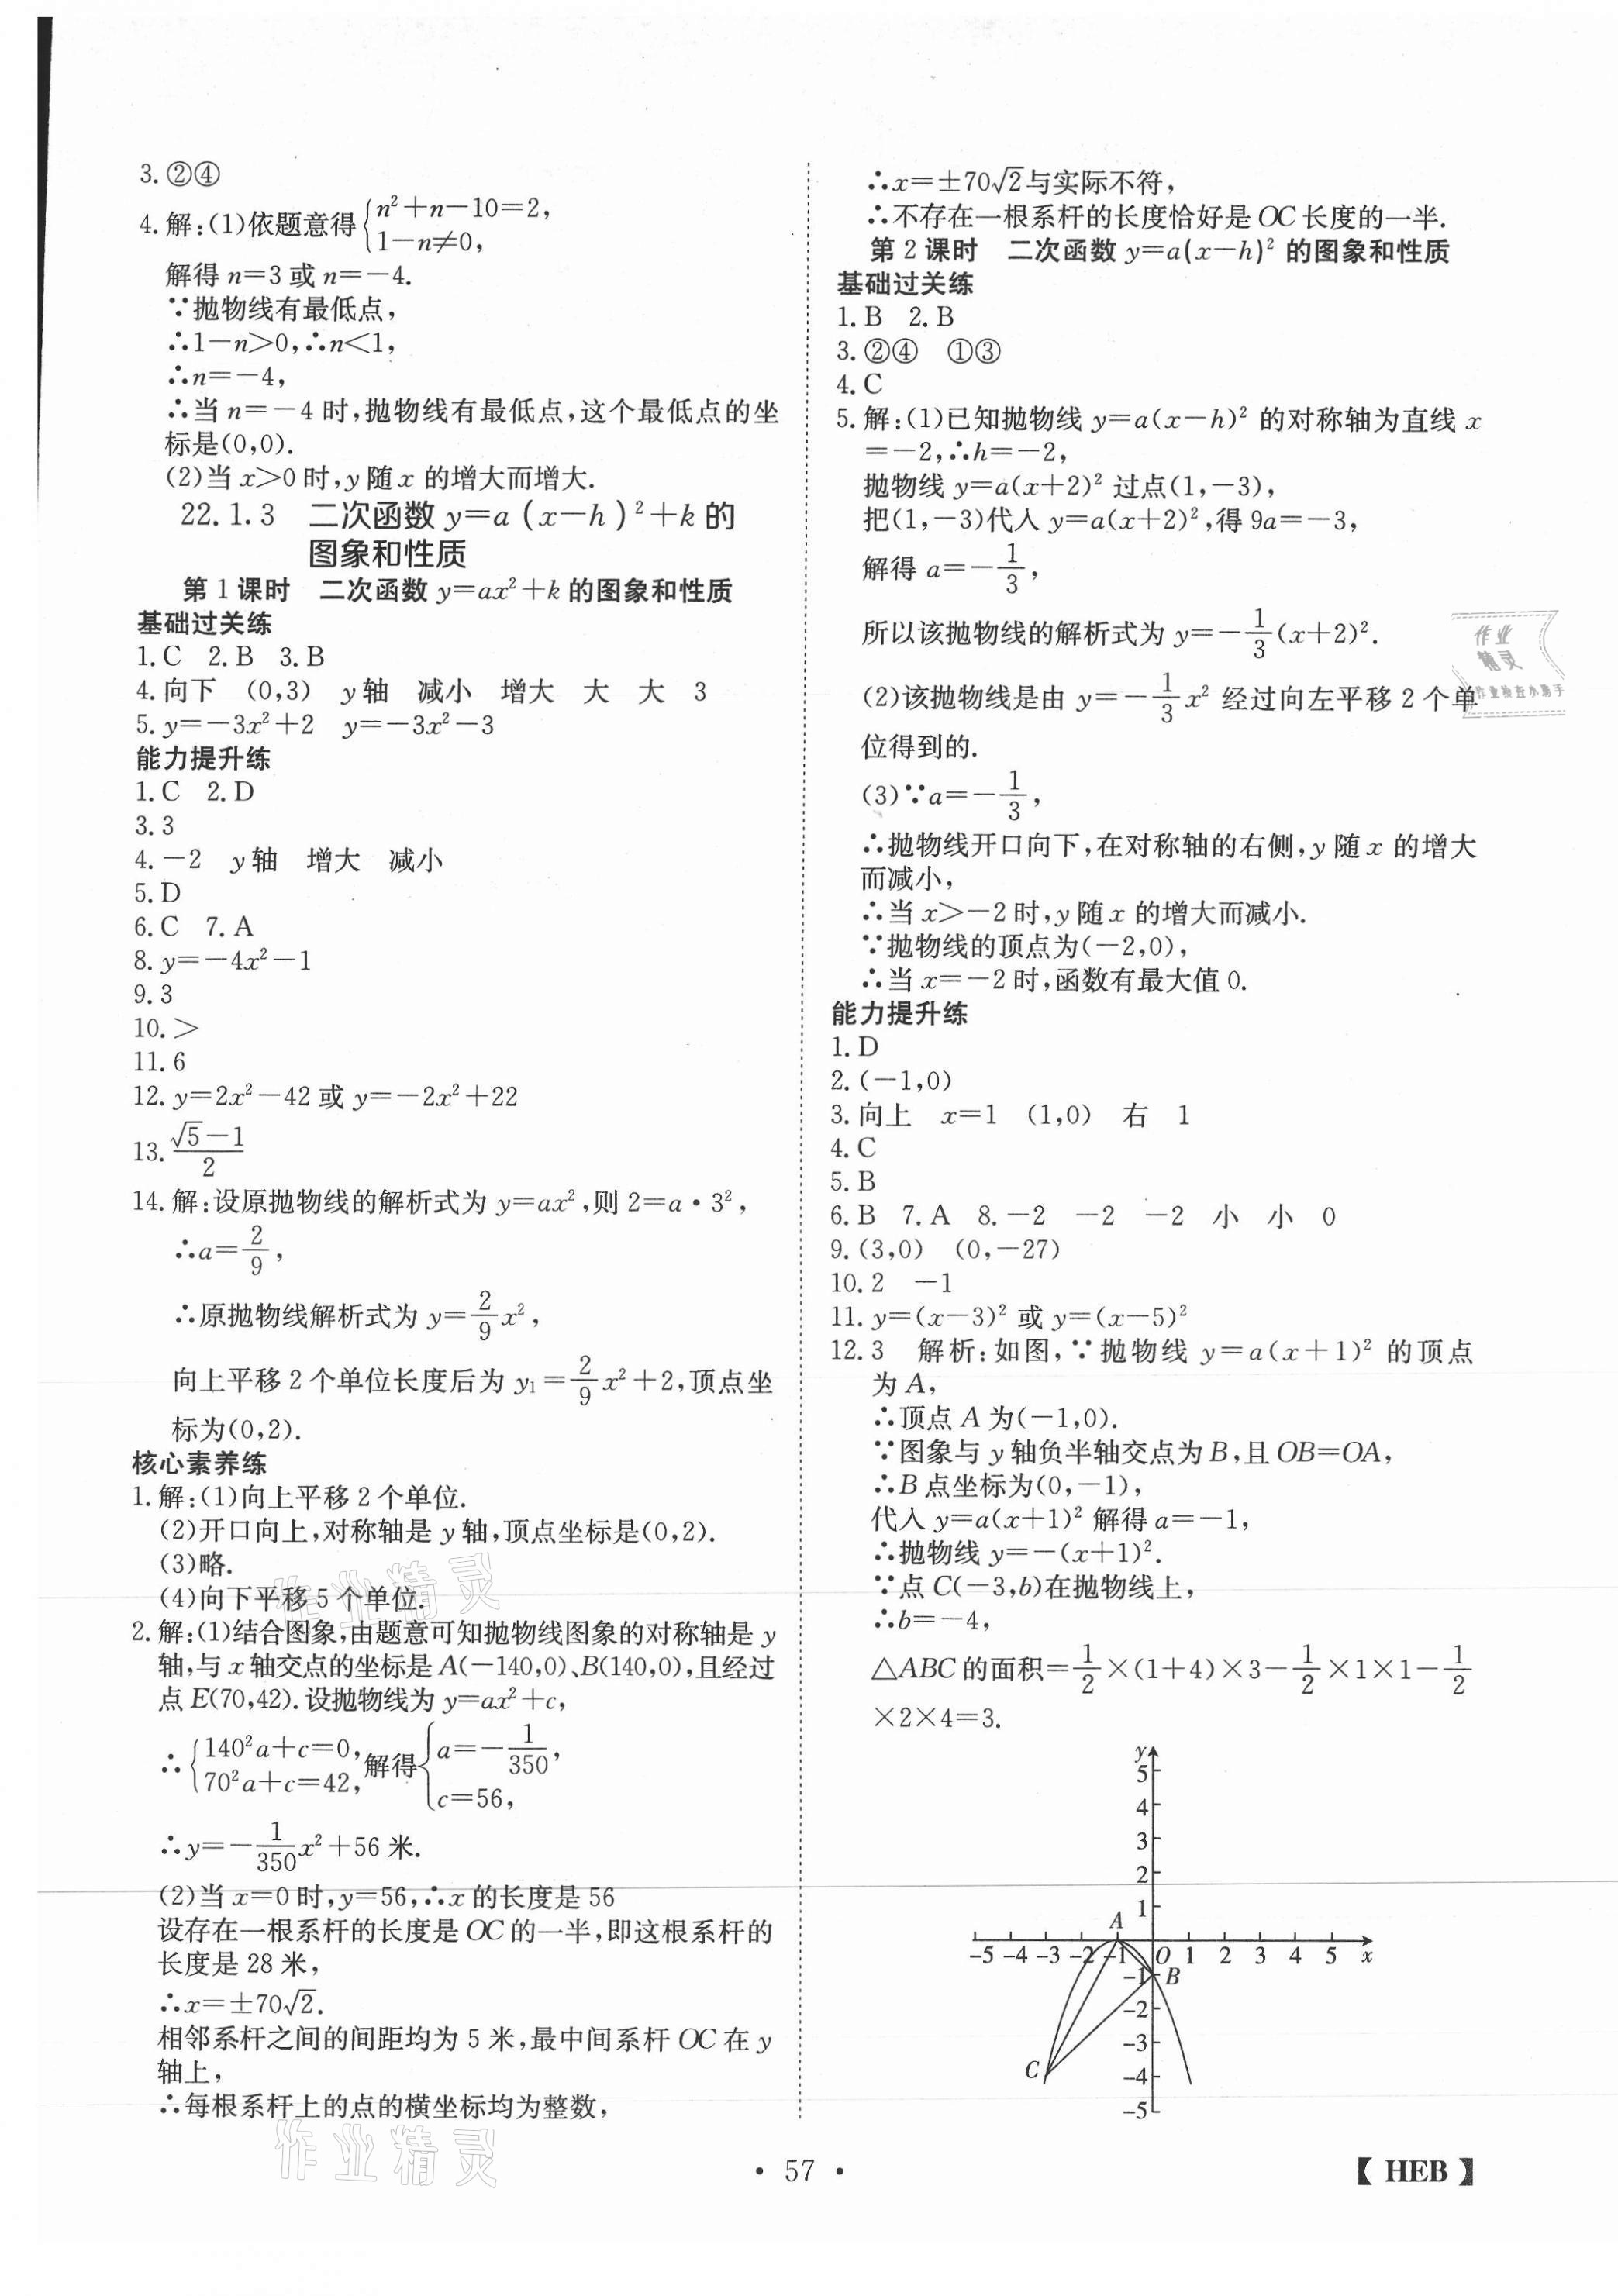 3. ②④
4. 解:(1)依题意得{n²+n-10=2,
1-n≠0,
解得 n=3 或 n=-4.
∵抛物线有最低点,
∴1-n>0,∴n<1,
∴n=-4,
∴当 n=-4 时,抛物线有最低点,这个最低点的坐
标是(0,0).
(2)当 x>0 时,y 随 x 的增大而增大.
22.1.3 二次函数 y=a(x-h)²+k 的
图象和性质
第 1 课时 二次函数 y=ax²+k 的图象和性质
基础过关练
1. C 2. B 3. B
4. 向下 (0,3) y 轴 减小 增大 大 大 3
5. y=-3x²+2 y=-3x²-3
能力提升练
1. C 2. D
3. 3
4. -2 y 轴 增大 减小
5. D
6. C 7. A
8. y=-4x²-1
9. 3
10. >
11. 6
12. y=2x²-42 或 y=-2x²+22
13. (√5-1)/2
14. 解:设原抛物线的解析式为 y=ax²,则 2=a·3²,
∴a=2/9,
∴原抛物线解析式为 y=2/9x²,
向上平移 2 个单位长度后为 y₁=2/9x²+2,顶点坐
标为(0,2).
核心素养练
1. 解:(1)向上平移 2 个单位.
(2)开口向上,对称轴是 y 轴,顶点坐标是(0,2).
(3)略.
(4)向下平移 5 个单位.
2. 解:(1)结合图象,由题意可知抛物线图象的对称轴是 y
轴,与 x 轴交点的坐标是 A(-140,0)、B(140,0),且经过
点 E(70,42). 设抛物线为 y=ax²+c,
∴{140²a+c=0, 70²a+c=42, 解得{a=-1/350, c=56,
∴y=-1/350x²+56 米.
(2)当 x=0 时,y=56,∴x 的长度是 56
设存在一根系杆的长度是 OC 的一半,即这根系杆的
长度是 28 米,
∴x=±70√2.
相邻系杆之间的间距均为 5 米,最中间系杆 OC 在 y
轴上,
∴每根系杆上的点的横坐标均为整数,
∴x=±70√2与实际不符,
∴不存在一根系杆的长度恰好是 OC 长度的一半.
第 2 课时 二次函数 y=a(x-h)² 的图象和性质
基础过关练
1. B 2. B
3. ②④ ①③
4. C
5. 解:(1)已知抛物线 y=a(x-h)² 的对称轴为直线 x
=-2,∴h=-2,
抛物线 y=a(x+2)² 过点(1,-3),
把(1,-3)代入 y=a(x+2)²,得 9a=-3,
解得 a=-1/3,
所以该抛物线的解析式为 y=-1/3(x+2)².
(2)该抛物线是由 y=-1/3x² 经过向左平移 2 个单
位得到的.
(3)∵a=-1/3,
∴抛物线开口向下,在对称轴的右侧,y 随 x 的增大
而减小,
∴当 x>-2 时,y 随 x 的增大而减小.
∵抛物线的顶点为(-2,0),
∴当 x=-2 时,函数有最大值 0.
能力提升练
1. D
2. (-1,0)
3. 向上 x=1 (1,0) 右 1
4. C
5. B
6. B 7. A 8. -2 -2 -2 小 小 0
9. (3,0) (0,-27)
10. 2 -1
11. y=(x-3)² 或 y=(x-5)²
12. 3 解析:如图,∵抛物线 y=a(x+1)² 的顶点
为 A,
∴顶点 A 为(-1,0).
∵图象与 y 轴负半轴交点为 B,且 OB=OA,
∴B 点坐标为(0,-1),
代入 y=a(x+1)² 解得 a=-1,
∴抛物线 y=-(x+1)².
∵点 C(-3,b)在抛物线上,
∴b=-4,
△ABC 的面积=1/2×(1+4)×3-1/2×1×1-1/2
×2×4=3.
y
5
4
3
2
1
A
-5 -4 -3 -2 -1 O 1 2 3 4 5 x
-1 B
-2
-3
C -4
-5
作业
精灵
作业检查小助手
作业精灵
作业精灵
· 57 ·
【HEB】